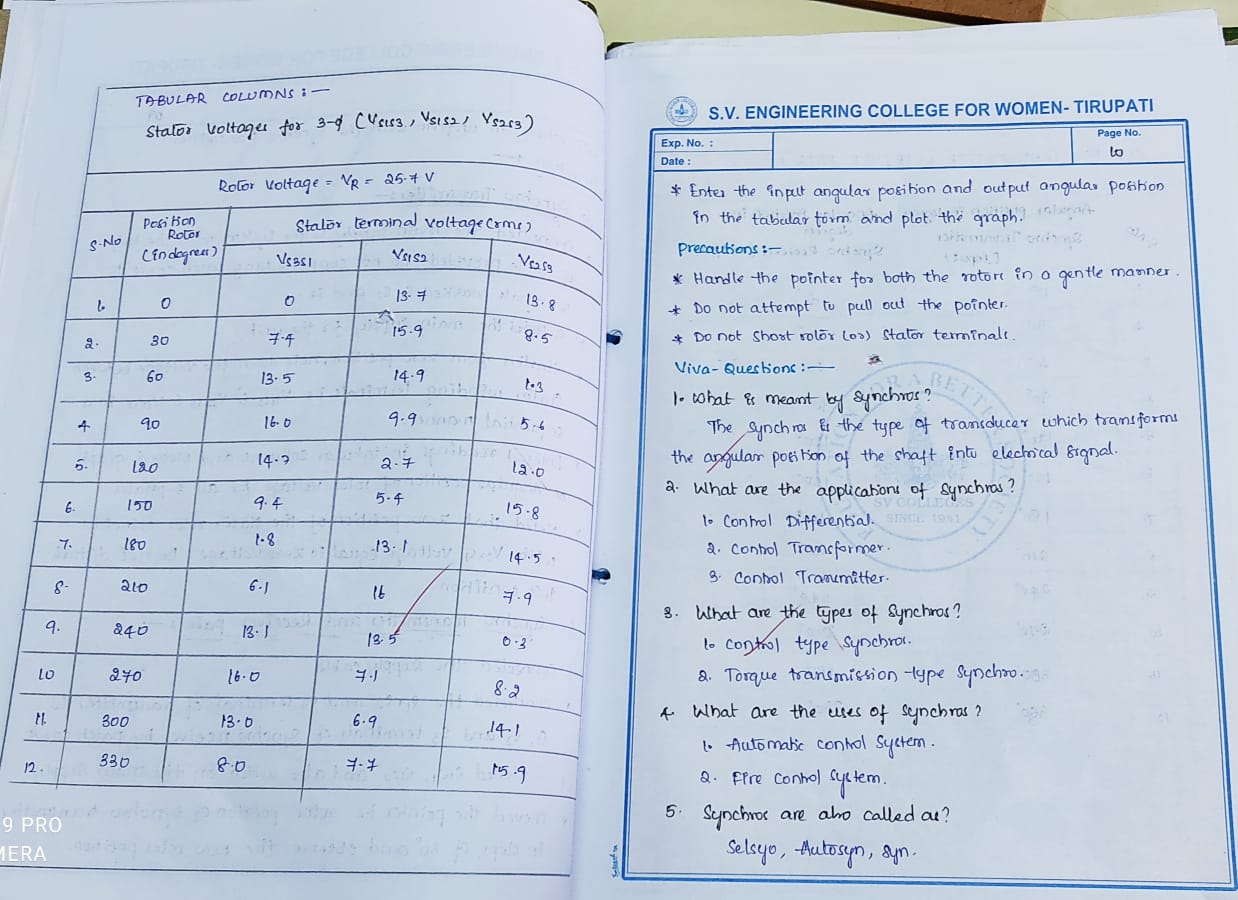 TABULAR COLUMNS :-
Stator Voltages for 3-ϕ (VS1S3, VS1S2, VS2S3)
Rotor Voltage = VR = 25.7 V
S.No Position Rotor (in degrees) Stator terminal voltage (rms)
VS3S1 VS1S2 VS2S3
1. 0 0 13.7 13.8
2. 30 7.4 15.9 8.5
3. 60 13.5 14.9 1.3
4 90 16.0 9.9 5.6
5. 120 14.7 2.7 12.0
6. 150 9.4 5.4 15.8
7. 180 1.8 13.1 14.5
8. 210 6.1 16 7.9
9. 240 13.1 13.5 0.3
10 270 16.0 7.1 8.2
11. 300 13.0 6.9 14.1
12. 330 8.0 7.7 15.9
9 PRO
MERA
S.V. ENGINEERING COLLEGE FOR WOMEN- TIRUPATI
Exp. No. :
Date :
Page No.
10
* Enter the input angular position and output angular position
in the tabular form and plot the graph.
Precautions :-
* Handle the pointer for both the rotors in a gentle manner.
* Do not attempt to pull out the pointer.
* Do not Short rotor (or) Stator terminals.
Viva- Questions :-
1. What is meant by Synchros?
The Synchros is the type of transducer which transforms
the angular position of the shaft into electrical signal.
2. What are the applications of Synchros?
1. Control Differential.
2. Control Transformer.
3. Control Transmitter.
3. What are the types of Synchros?
1. Control type Synchros.
2. Torque transmission type Synchro.
4. What are the uses of Synchros?
1. Automatic control System.
2. Fire Control System.
5. Synchros are also called as?
Selsyo, Autosyn, Syn.
SV COLLEGES
SINCE 1981